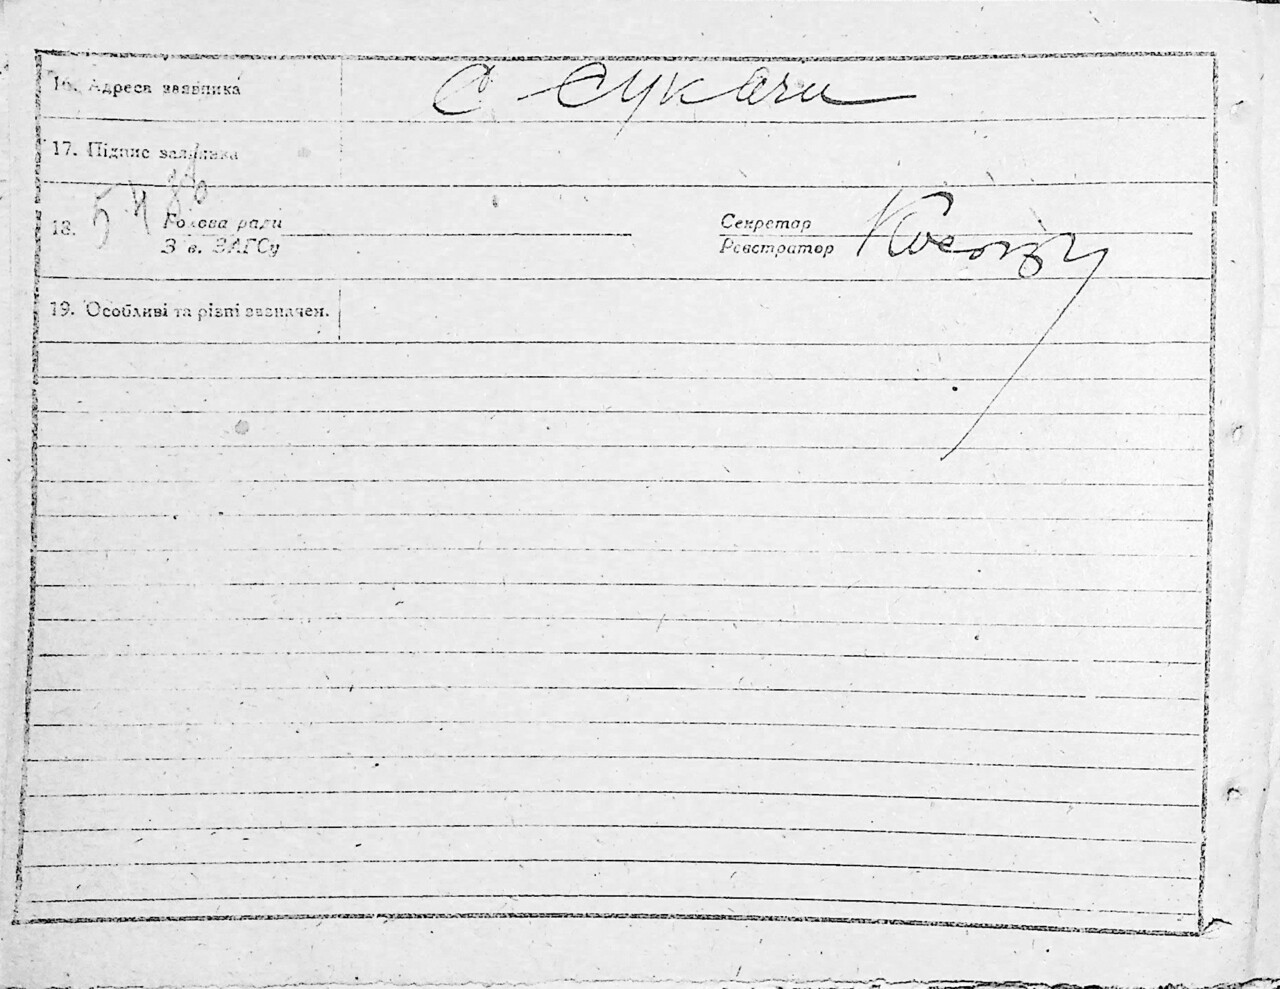 16. Адреса заявника С Сукачи
17. Підпис заявника
18. Голова ради Секретар
З в. ЗАГСу Реєстратор
19. Особливі та різні зазначен.